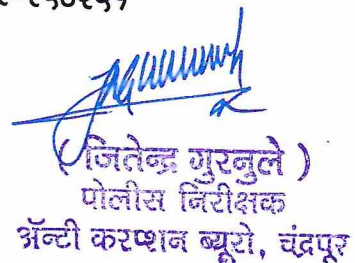 ( जितेन्द्र गुरनुले )
पोलीस निरीक्षक
ॲन्टी करप्शन ब्युरो, चंद्रपूर